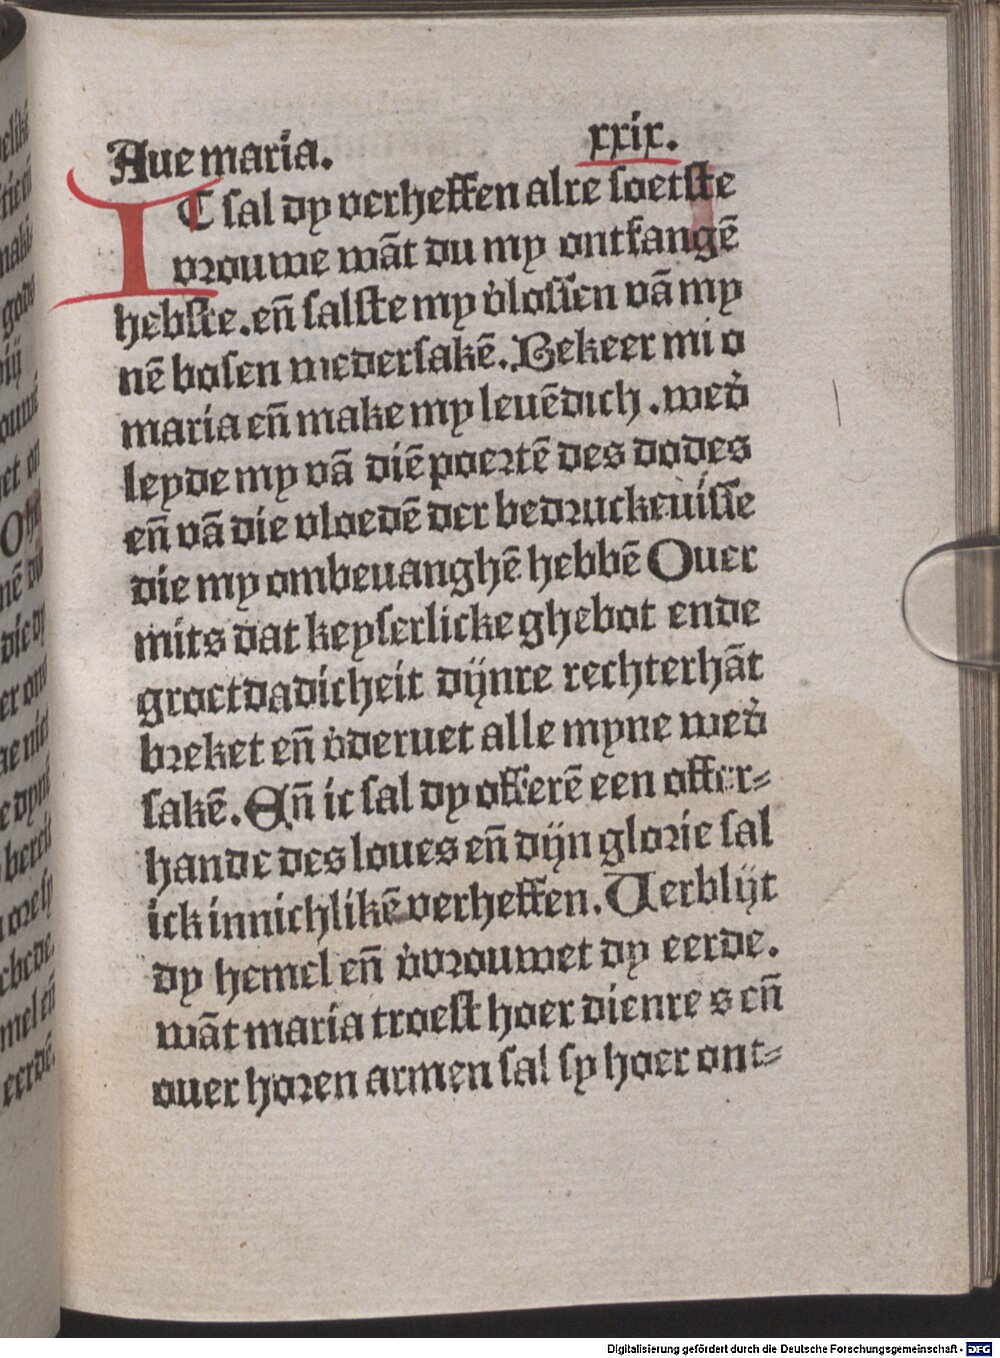 Aue maria. xxix.
IC sal dy verheffen alre soetste
vrouwe wāt du my ontfangē
hebste. eñ salste my v̓lossen vā my
nē bosen wedersakē. Bekeer mi o
maria eñ make my leuēdich. wed̓
leyde my vā diē poertē des dodes
eñ vā die vloedē der bedruckenisse
die my ombeuanghē hebbē Ouer
mits dat keyserlicke ghebot ende
groetdadicheit dijnre rechterhāt
breket eñ v̓deruet alle myne wed̓
sakē. Eñ ic sal dy offerē een offer⸗
hande des loues eñ dijn glorie sal
ick innichlikē verheffen. Uerblijt
dy hemel eñ v̓vrouwet dy eerde.
wāt maria troest hoer dienre s eñ
ouer horen armen sal sy hoer ont⸗
Digitalisierung gefördert durch die Deutsche Forschungsgemeinschaft - DFG